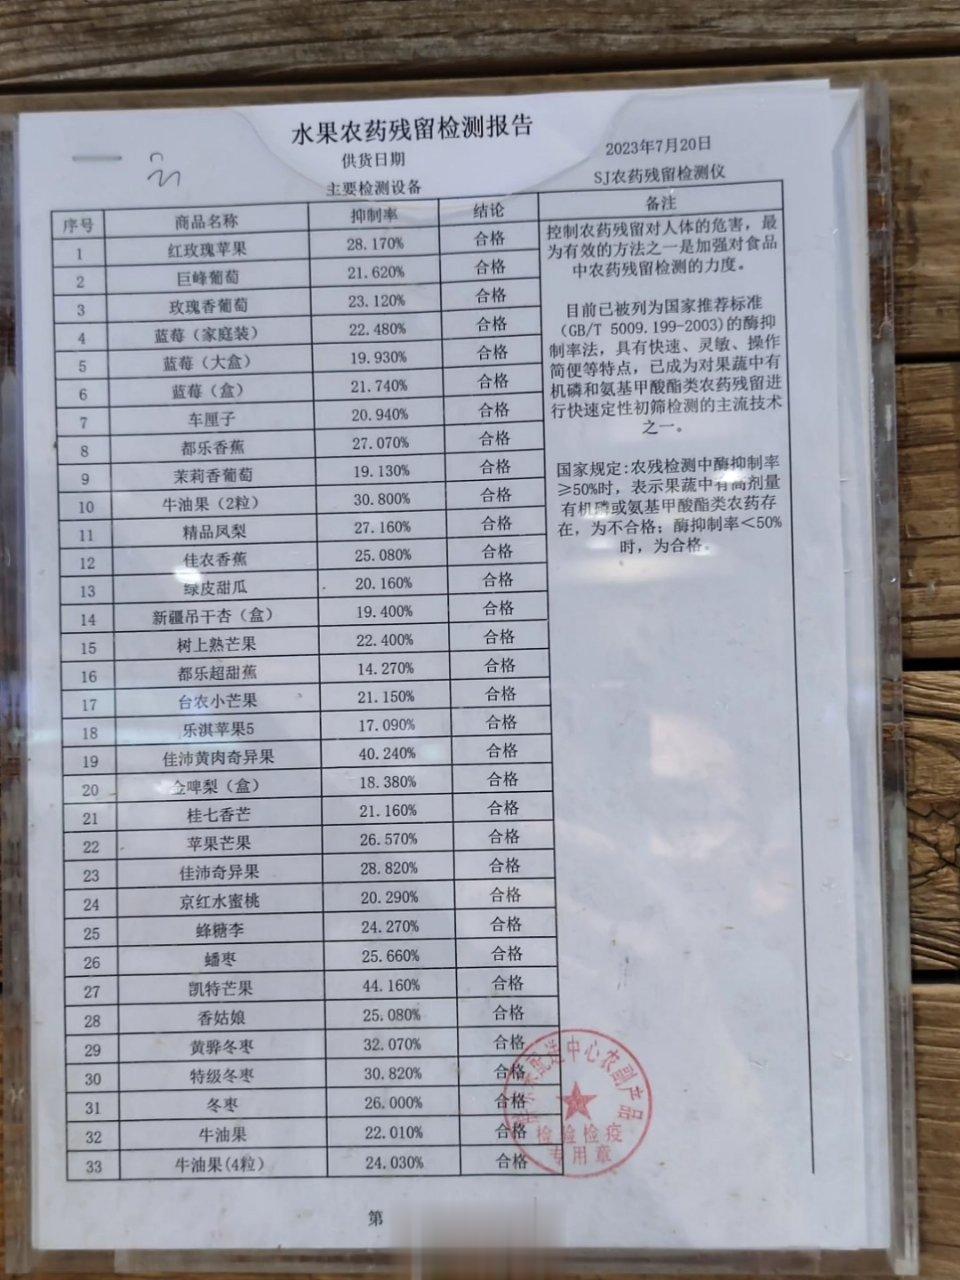 水果农药残留检测报告
供货日期 2023年7月20日
主要检测设备 SJ农药残留检测仪
序号 商品名称 抑制率 结论 备注
1 红玫瑰苹果 28.170% 合格
2 巨峰葡萄 21.620% 合格
3 玫瑰香葡萄 23.120% 合格
4 蓝莓（家庭装） 22.480% 合格
5 蓝莓（大盒） 19.930% 合格
6 蓝莓（盒） 21.740% 合格
7 车厘子 20.940% 合格
8 都乐香蕉 27.070% 合格
9 茉莉香葡萄 19.130% 合格
10 牛油果（2粒） 30.800% 合格
11 精品凤梨 27.160% 合格
12 佳农香蕉 25.080% 合格
13 绿皮甜瓜 20.160% 合格
14 新疆吊干杏（盒） 19.400% 合格
15 树上熟芒果 22.400% 合格
16 都乐超甜蕉 14.270% 合格
17 台农小芒果 21.150% 合格
18 乐淇苹果5 17.090% 合格
19 佳沛黄肉奇异果 40.240% 合格
20 金啤梨（盒） 18.380% 合格
21 桂七香芒 21.160% 合格
22 苹果芒果 26.570% 合格
23 佳沛奇异果 28.820% 合格
24 京红水蜜桃 20.290% 合格
25 蜂糖李 24.270% 合格
26 蟠枣 25.660% 合格
27 凯特芒果 44.160% 合格
28 香姑娘 25.080% 合格
29 黄骅冬枣 32.070% 合格
30 特级冬枣 30.820% 合格
31 冬枣 26.000% 合格
32 牛油果 22.010% 合格
33 牛油果(4粒） 24.030% 合格
控制农药残留对人体的危害，最
为有效的方法之一是加强对食品
中农药残留检测的力度。
目前已被列为国家推荐标准
（GB/T 5009.199-2003)的酶抑
制率法，具有快速、灵敏、操作
简便等特点，已成为对果蔬中有
机磷和氨基甲酸酯类农药残留进
行快速定性初筛检测的主流技术
之一。
国家规定:农残检测中酶抑制率
≥50%时，表示果蔬中有高剂量
有机磷或氨基甲酸酯类农药存
在，为不合格；酶抑制率＜50%
时，为合格。
配送中心农副产品
检验检疫
专用章
第